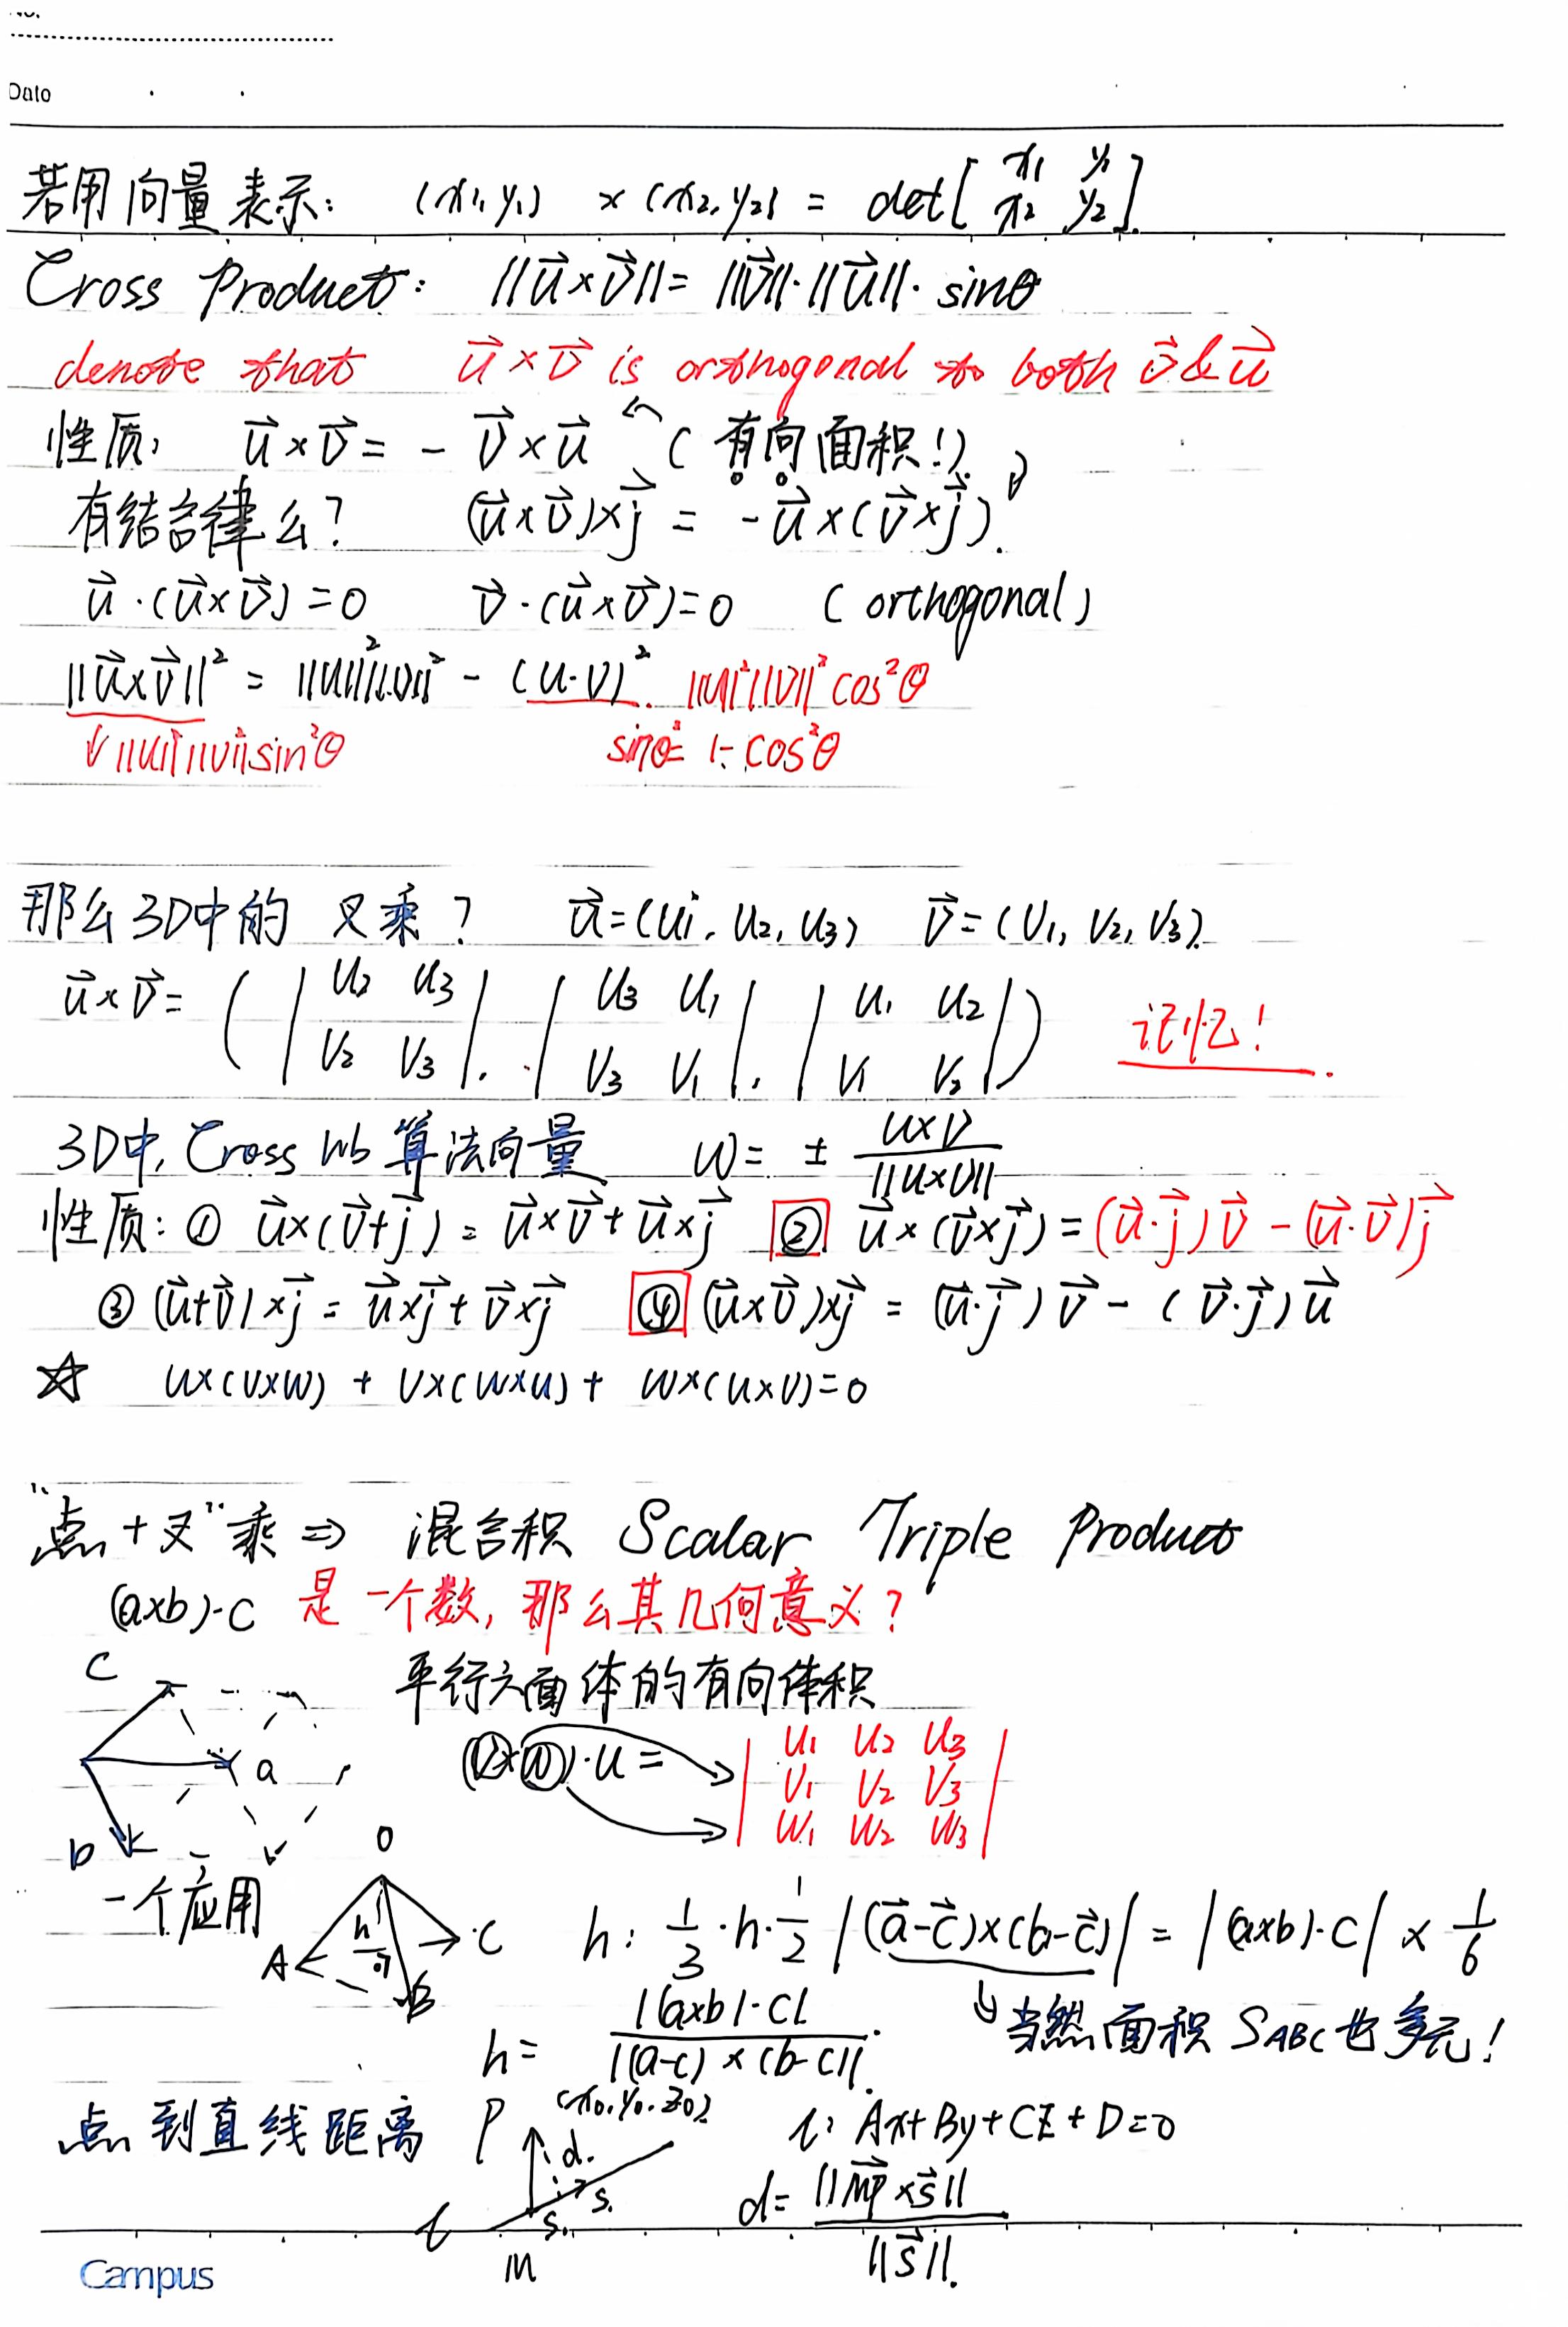 No.
Date
若用向量表示: (x₁,y₁) × (x₂,y₂) = det[ x₁ y₁ x₂ y₂ ]
Cross Product: ||u⃗×v⃗|| = ||v⃗||·||u⃗||·sinθ
denote that u⃗×v⃗ is orthogonal to both v⃗ & u⃗
性质: u⃗×v⃗ = - v⃗×u⃗ (有向面积!)
有结合律么? (u⃗×v⃗)×j⃗ = -u⃗×(v⃗×j⃗).
u⃗·(u⃗×v⃗)=0 v⃗·(u⃗×v⃗)=0 (orthogonal)
||u⃗×v⃗||² = ||u||²||v||² - (u·v)² ||u||²||v||²cos²θ
||u||²||v||²sin²θ sin²θ = 1-cos²θ
那么3D中的 叉乘? u⃗=(u₁, u₂, u₃) v⃗=(v₁, v₂, v₃)
u⃗×v⃗ = ( | u₂ u₃ v₂ v₃ |, | u₃ u₁ v₃ v₁ |, | u₁ u₂ v₁ v₂ | ) 记忆!
3D中, Cross 算法向量 w = ± u×v / ||u×v||
性质: ① u⃗×(v⃗+j⃗) = u⃗×v⃗+u⃗×j⃗ ② u⃗×(v⃗×j⃗) = (u⃗·j⃗)v⃗ - (u⃗·v⃗)j⃗
③ (u⃗+v⃗)×j⃗ = u⃗×j⃗+v⃗×j⃗ ④ (u⃗×v⃗)×j⃗ = (u⃗·j⃗)v⃗ - (v⃗·j⃗)u⃗
☆ u×(v×w) + v×(w×u) + w×(u×v)=0
"点+叉"乘 ⇒ 混合积 Scalar Triple Product
(a×b)·c 是一个数, 那么其几何意义?
平行六面体的有向体积
c
a
b
(v×w)·u = | u₁ u₂ u₃ v₁ v₂ v₃ w₁ w₂ w₃ |
一个应用
O
A
h
B
C
h: 1/3·h·1/2 |(a⃗-c⃗)×(b-c⃗)| = |(a×b)·c| × 1/6
当然面积 SABC 也
h = |(a×b)·c| / |(a-c)×(b-c)|.
点到直线距离 P (x₀,y₀,z₀) l: Ax+By+CZ+D=0
d. s. s.
l
M
d = ||MP⃗×s⃗|| / ||s⃗||.
Campus